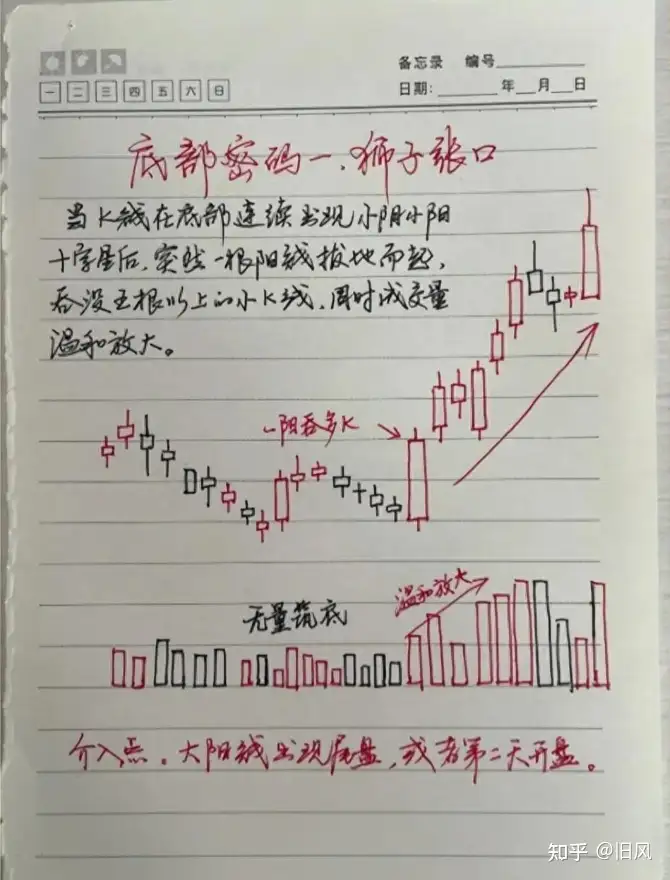 备忘录 编号
一 二 三 四 五 六 日
日期: 年 月 日
底部密码一、狮子张口
当K线在底部连续出现小阴小阳
十字星后,突然一根阳线拔地而起,
吞没五根以上的小K线,同时成交量
温和放大。
一阳吞多K
温和放大
无量筑底
介入点。大阳线出现尾盘,或者第二天开盘。
知乎 @旧风